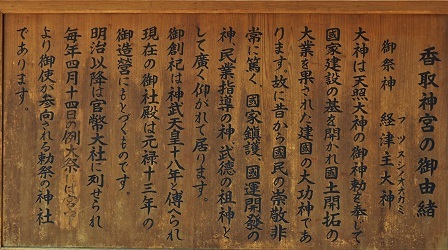 香取神宮の御由緒
御祭神 経津主大神
フツヌシノオオカミ
大神は天照大神の御神勅を奉じて
國家建設の基を開かれ國土開拓の
大業を果された建国の大功神であ
ります。故に昔から国民の崇敬非
常に篤く、國家鎮護、國運開發の
神、民業指導の神、武徳の祖神と
して廣く仰がれて居ります。
御創祀は神武天皇十八年と傳へられ
現在の御社殿は元禄十三年の
御造營にもとづくものです。
明治以降は官幣大社に列せられ
毎年四月十四日の例大祭には宮中
より御使が参向される勅祭の神社
であります。